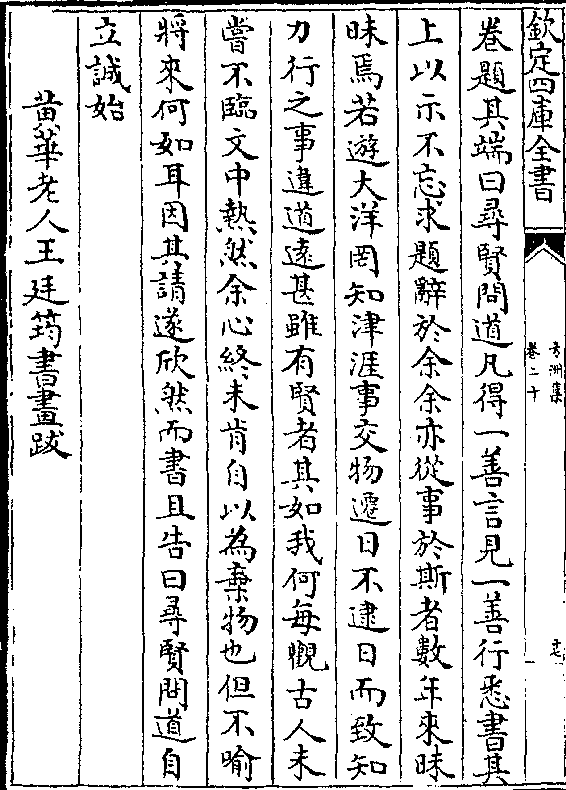 欽定四庫全書
方洲集
卷二十
卷題其端曰尋賢問道凡得一善言見一善行悉書其
上以示不忘求題辭於余余亦從事於斯者數年來昧
昧焉若遊大洋罔知津涯事交物遷日不逮日而致知
力行之事違道遠甚雖有賢者其如我何每觀古人未
嘗不臨文中熱然余心終未肯自以為棄物也但不喻
將來何如耳因其請遂欣然而書且告曰尋賢問道自
立誠始
黄華老人王廷筠書畫跋